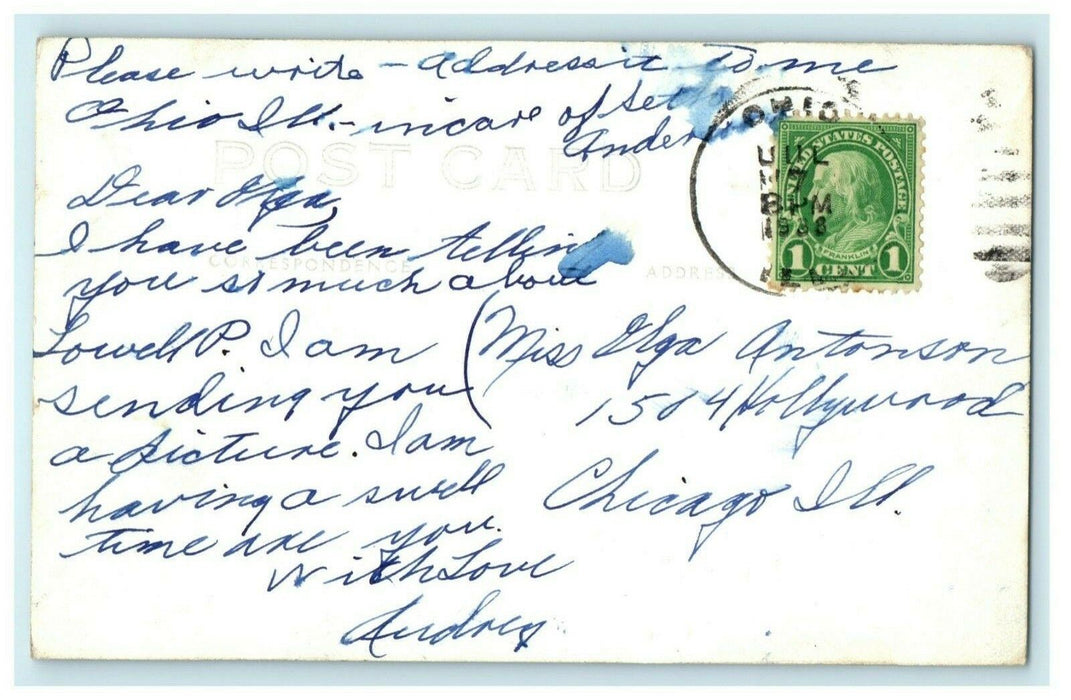 Please write - Address it to me
Ohio Ill. - in care of
Ander
POST CARD
Dear Elga,
I have been tellin
CORRESPONDENCE
you so much about
Lowell P. I am
sending you
a picture. I am
having a swell
time are you.
With Love
Audrey
ADDRESS
OHIO
JUL
8 PM
UNITED STATES POSTAGE
FRANKLIN
1 CENT 1
Miss Elga Antonson
1504 Hollywood
Chicago Ill.